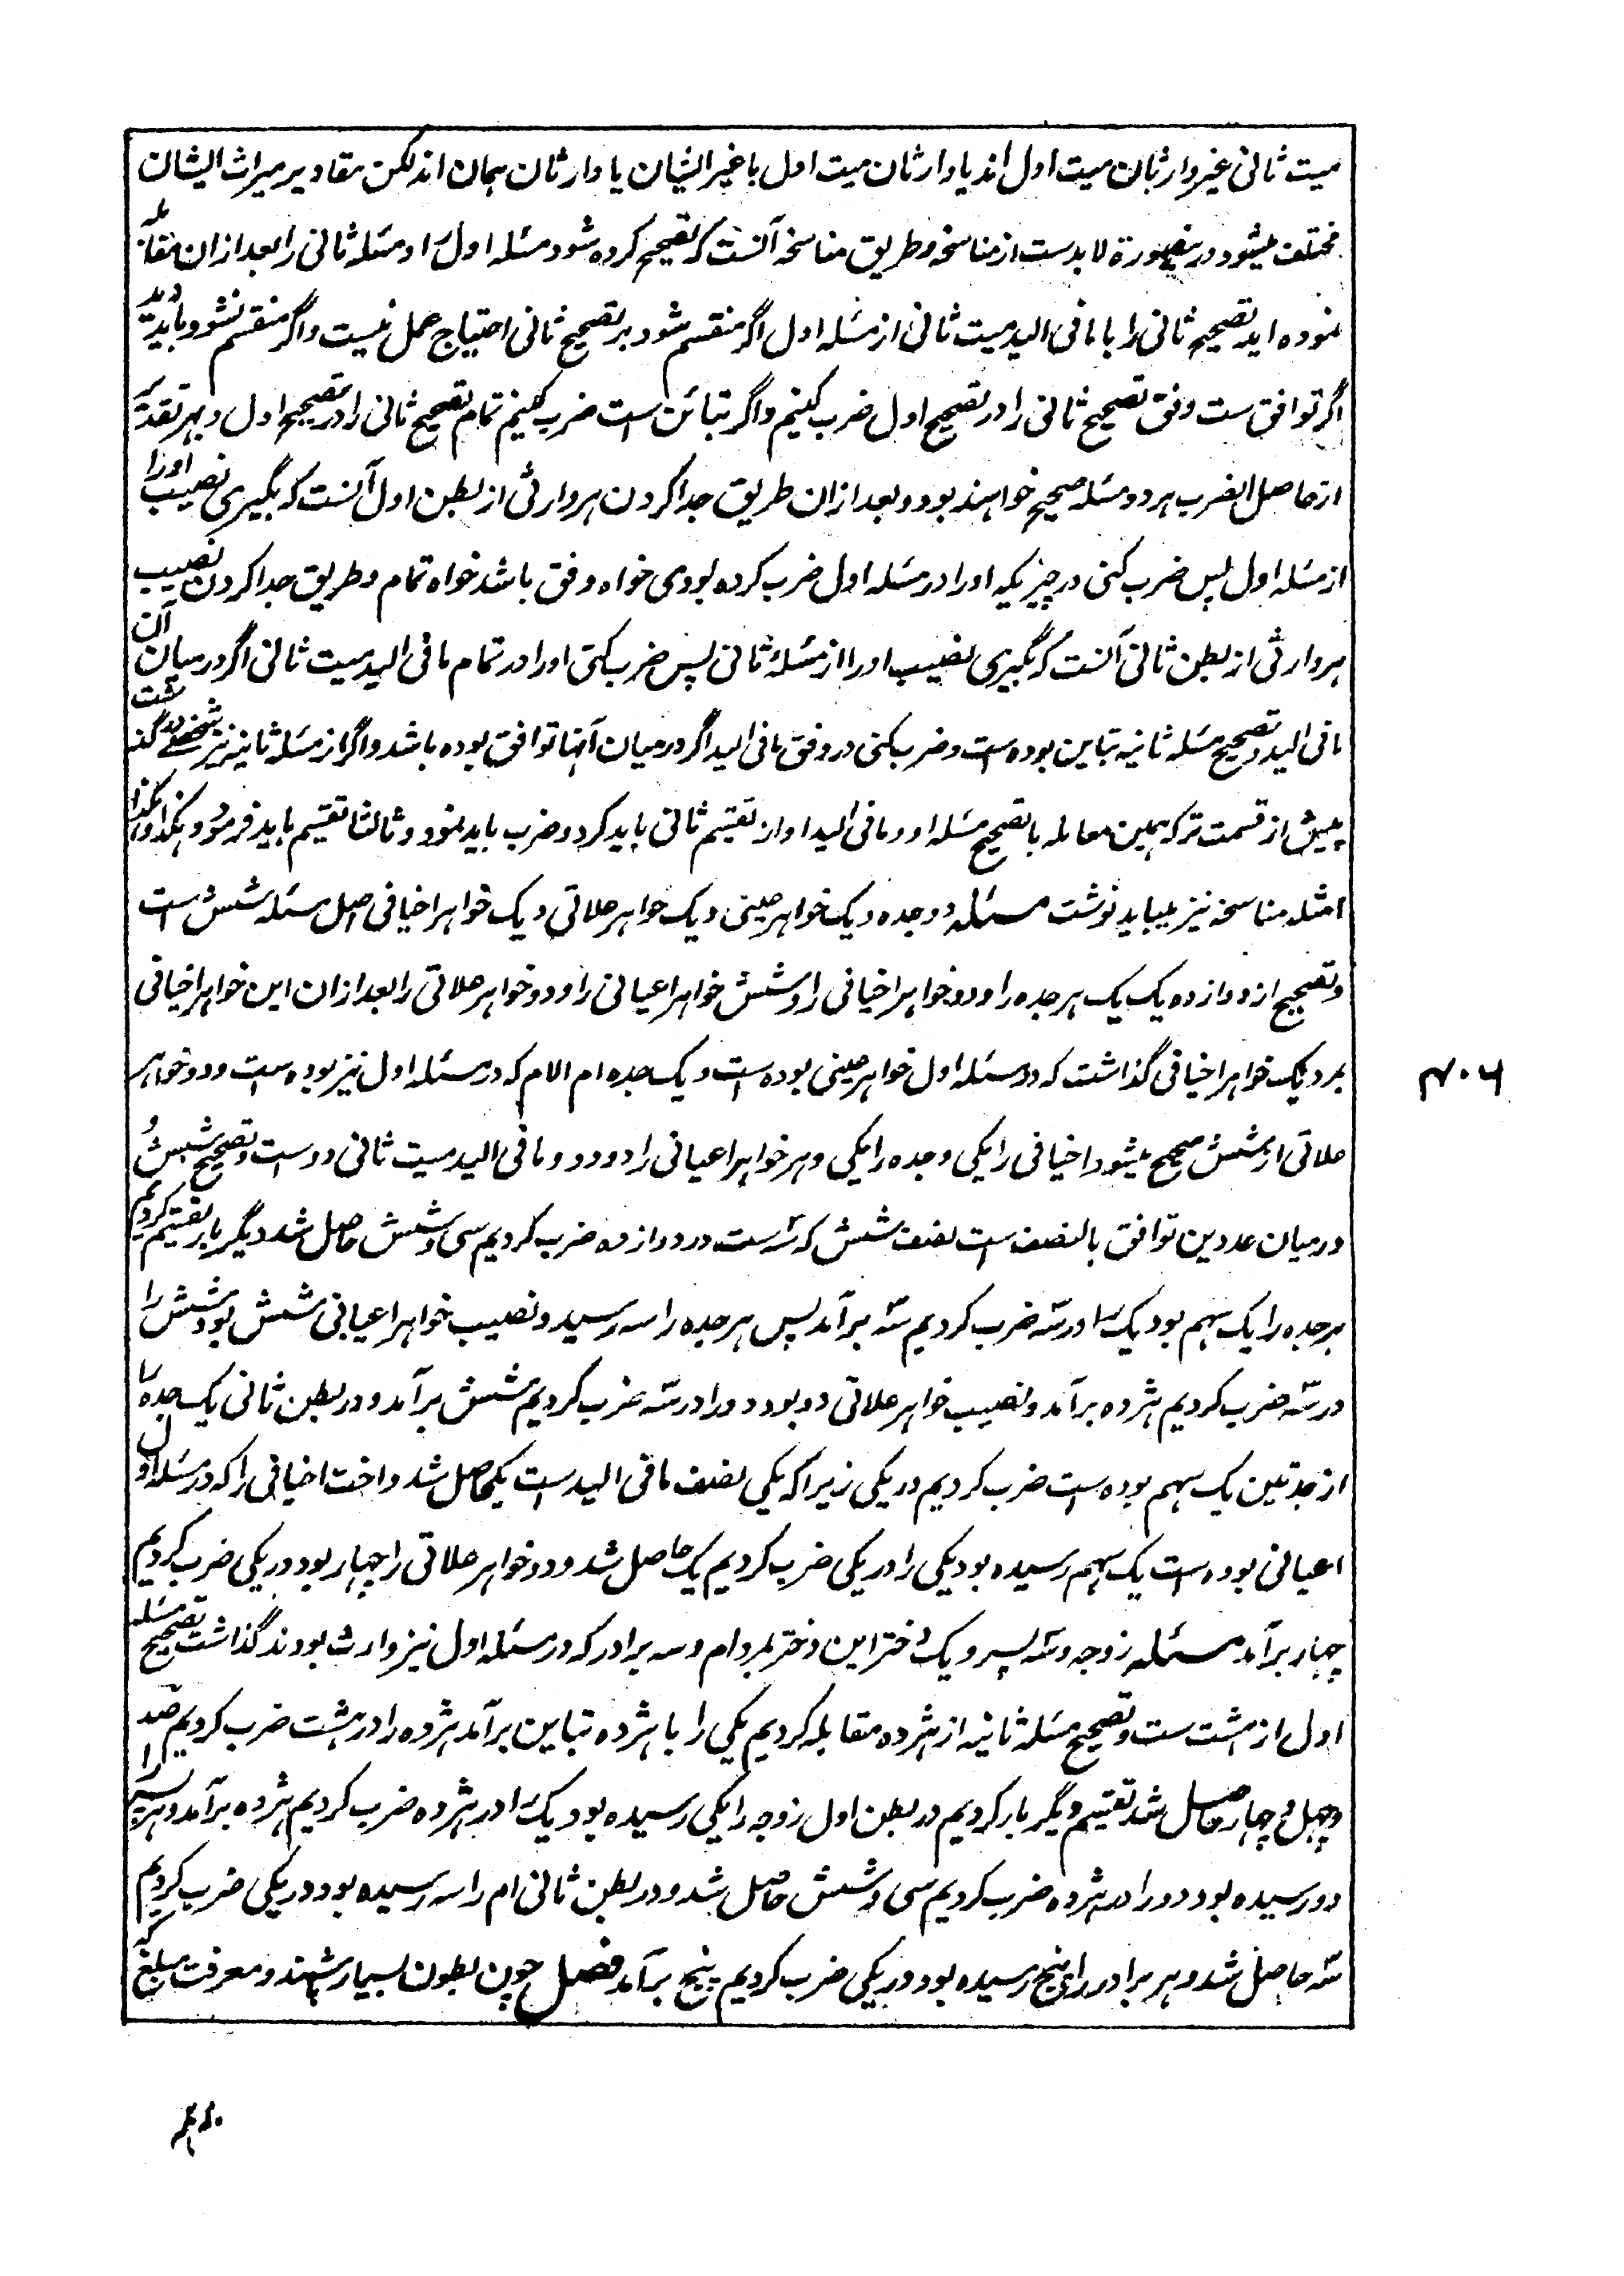 میت ثانی غیر وارثان میت اول اند یا وارثان میت اول با غیر ایشان یا وارثان همان اند لکن مقادیر میراث ایشان
مختلف میشود درینصورة لابدست از مناسخه و طریق مناسخه آنست که تصحیح کرده شود مسئله اول را و مسئله ثانی را بعد ازان مقابله
نموده اید تصحیح ثانی را با ما فی الید میت ثانی از مسئله اول اگر منقسم شود بر تصحیح ثانی احتیاج عمل نیست و اگر منقسم نشود باید دید
اگر توافق ست وفق تصحیح ثانی را در تصحیح اول ضرب کنیم و اگر تبائن است ضرب کنیم تمام تصحیح ثانی را در تصحیح اول و بهر تقدیر
از حاصل الضرب هر دو مسئله صحیح خواهند بود و بعد ازان طریق جدا کردن هر وارثی از بطن اول آنست که بگیری نصیب اورا
از مسئله اول پس ضرب کنی در چیزیکه اورا در مسئله اول ضرب کرده بودی خواه وفق باشد خواه تمام و طریق جدا کردن نصیب
هر وارثی از بطن ثانی آنست که بگیری نصیب اورا از مسئله ثانی پس ضرب کنی اورا در تمام ما فی الید میت ثانی اگر درمیان آن
ما فی الید و تصحیح مسئله ثانیه تباین بوده است و ضرب کنی در وفق ما فی الید اگر درمیان آنها توافق بوده باشد و اگر از مسئله ثانیه نیز شخصے در گذشت
پیش از قسمت ترکه همین معامله با تصحیح مسئله او و ما فی الید او از تقسیم ثانی باید کرد و ضرب باید نمود و ثالثا تقسیم باید فرمود و هکذا و هکذا
امثله مناسخه نیز میباید نوشت مسئله دو جده و یک خواهر عینی و یک خواهر علاتی و یک خواهر اخیافی اصل مسئله شش است
و تصحیح از دوازده یک یک هر جده را و دو خواهر اخیافی را و شش خواهر اعیانی را و دو خواهر علاتی را بعد ازان این خواهر اخیافی
بمرد یک خواهر اخیافی گذاشت که در مسئله اول خواهر عینی بوده است و یک جده ام الام که در مسئله اول نیز بوده است و دو خواهر
علاتی از شش صحیح میشود اخیافی را یکی و جده را یکی و هر خواهر اعیانی را دو دو و ما فی الید میت ثانی دو ست و تصحیح شش و
درمیان عددین توافق بالنصف است نصف شش که سه ست در دوازده ضرب کردیم سی و شش حاصل شد دیگر بار تقسیم کردیم
هر جده را یک سهم بود یک را در سه ضرب کردیم سه برآمد پس هر جده را سه رسید و نصیب خواهر اعیانی شش بود شش را
در سه ضرب کردیم هژده برآمد و نصیب خواهر علاتی دو بود دو را در سه ضرب کردیم شش برآمد و در بطن ثانی یک جده را
از جدتین یک سهم بوده است ضرب کردیم در یکی زیرا که یکی نصف ما فی الید است یک حاصل شد و اخت اخیافی را که در مسئله اول
اعیانی بوده است یک سهم رسیده بود یکی را در یکی ضرب کردیم یک حاصل شد و دو خواهر علاتی را چهار بود در یکی ضرب کردیم
چهار برآمد مسئله زوجه و سه پسر و یک دختر این دختر بمرد ام و سه برادر که در مسئله اول نیز وارث بودند گذاشت تصحیح مسئله
اول از هشت ست و تصحیح مسئله ثانیه از هژده مقابله کردیم یکی را با هژده تباین برآمد هژده را در هشت ضرب کردیم صد
و چهل و چهار حاصل شد تقسیم دیگر بار کردیم در بطن اول زوجه را یکی رسیده بود یک را در هژده ضرب کردیم هژده برآمد و هر پسر را
دو رسیده بود دو را در هژده ضرب کردیم سی و شش حاصل شد و در بطن ثانی ام را سه رسیده بود در یکی ضرب کردیم
سه حاصل شد و هر برادر را پنج رسیده بود در یکی ضرب کردیم پنج برآمد فصل چون بطون بسیار شوند و معرفت مبلغ که